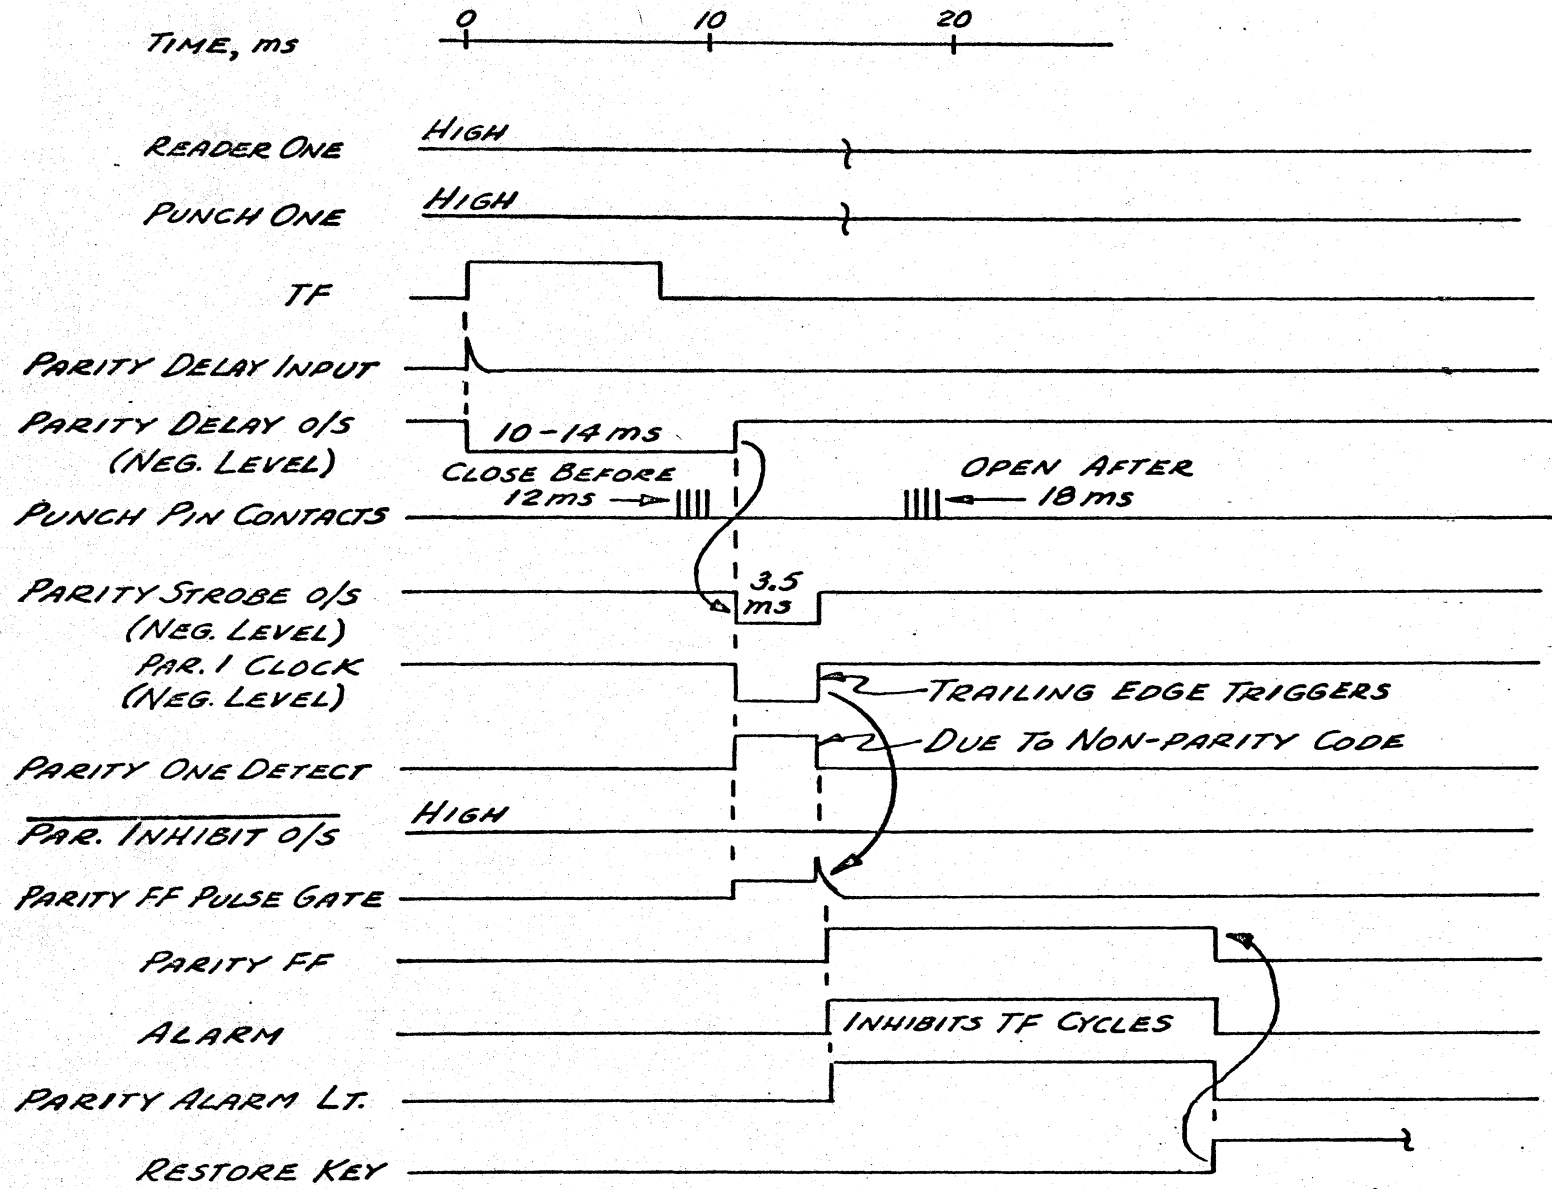 0 10 20
TIME, ms
READER ONE HIGH
PUNCH ONE HIGH
TF
PARITY DELAY INPUT
PARITY DELAY O/S 10-14 ms
(NEG. LEVEL)
CLOSE BEFORE
12 ms
OPEN AFTER
18 ms
PUNCH PIN CONTACTS
PARITY STROBE O/S
(NEG. LEVEL)
3.5
ms
PAR. 1 CLOCK
(NEG. LEVEL)
TRAILING EDGE TRIGGERS
DUE TO NON-PARITY CODE
PARITY ONE DETECT
PAR. INHIBIT O/S HIGH
PARITY FF PULSE GATE
PARITY FF
ALARM INHIBITS TF CYCLES
PARITY ALARM LT.
RESTORE KEY